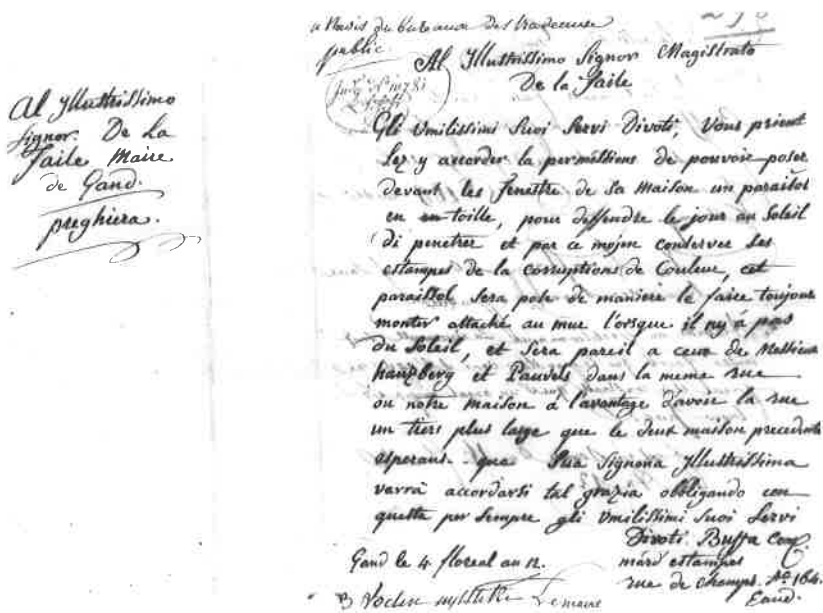 Al Yllustrissimo
Signor De La
Faile Maire
de Gand.
preghiera.
a Mavis du bureaux des
public.
Al Yllustrissimo Signor Magistrato
De la Faile
Gli Vmilissimi Suoi Servi Divoti, Vous prient
Lez y accorder la permettions de pouvoir poser
devant les fenestre de Sa Maison un paraisol
en en toille, pour deffendre le jour au Soleil
di penetrer et par ce mojen conserver Ses
estampes de la corruptions de Couleur, cet
paraissol Sera posé de maniere le faire toujour
monter attaché au mur l'orsque il ny á pas
du Soleil, et Sera pareil a ceux de Messieurs
Hanzberg et Pauvels dans la meme rue
ou notre maison á l'avantage d'avoir la rue
un tiers plus large que le deux maison precedente
esperans que Sua Signoria Yllustrissima
vorrá accordarti tal grazia obbligando con
questta per Sempre gli Vmilissimi Suoi Servi
Divoti. Buffa Comp.
Gand le 4 floreal an 12. mard estampes
rue de Champs. No. 164.
Gand.
Lemaire